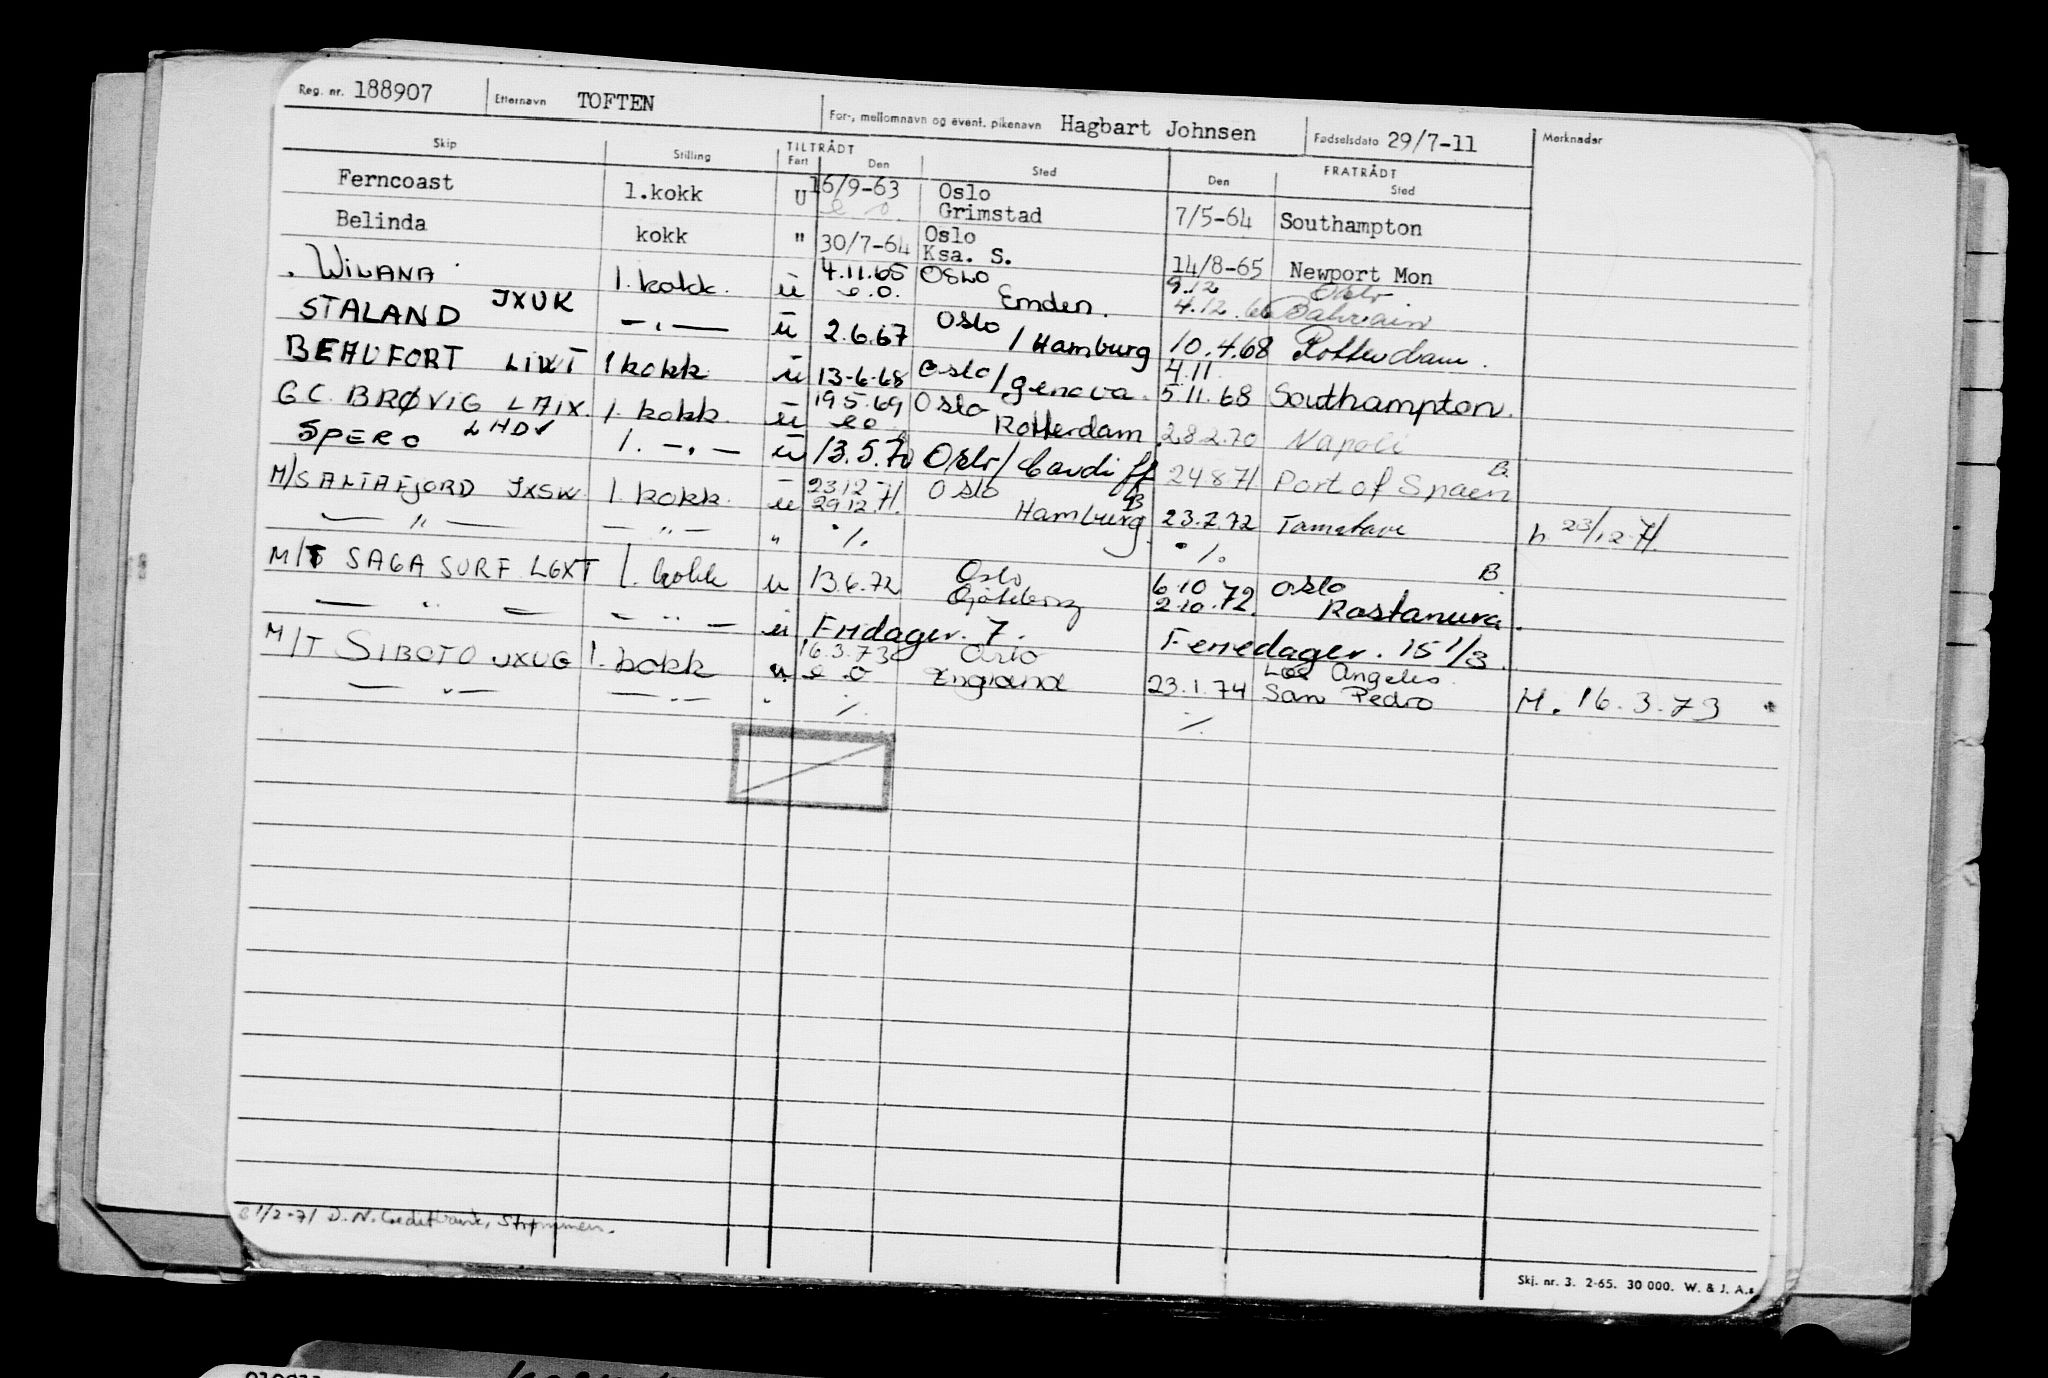 Reg. nr. 188907 Etternavn TOFTEN For-, mellomnavn og event. pikenavn Hagbart Johnsen Fødselsdato 29/7-11 Merknader
Skip Stilling TILTRÅDT Fart Den Sted FRATRÅDT Den Sted
Ferncoast 1.kokk U 16/9-63 Oslo
e o. Grimstad 7/5-64 Southampton
Belinda kokk " 30/7-64 Oslo
Ksa. S. 14/8-65 Newport Mon
WILANA 1. kokk. u 4.11.65 Oslo 9.12 Oslo
e.o. Emden. 4.12.66 Bahrain
STALAND JXUK — " — u 2.6.67 Oslo / Hamburg 10.4.68 Rotterdam.
BEAUFORT LIWT 1 kokk u 13-6-68 Oslo / Genova. 4.11
5.11.68 Southampton.
G.C. BRØVIG LAIX. 1. kokk. u 19.5.69 Oslo
e o Rotterdam 28.2.70 Napoli
SPERO LHDV 1. — " — u 13.5.70 Oslo / Cardiff 24.8.71 Port of Spaen B.
M/S ALTAFJORD JXSW 1. kokk. u 23.12 Oslo
29.12.71. Hamburg. B 23.2.72 h 23/12-71.
— " — — " — " ./. ./.
M/T SAGA SURF LGXT 1. kokk u 13.6.72 Oslo 6.10.72 Oslo B
Gøteborg 2.10.72. Rastanura.
— " — — " — u Fridager. 7. Feriedager. 15 1/3.
M/T SIBOTO JXUG 1. kokk u. 16.3.73 Oslo Los Angeles
e.o England 23.1.74 San Pedro M. 16.3.73
— " — — " — " ./. ./.
e 1/2-71 D.N. Creditbank, Strømmen.
Skj. nr. 3. 2-65. 30 000. W. & J. A.s